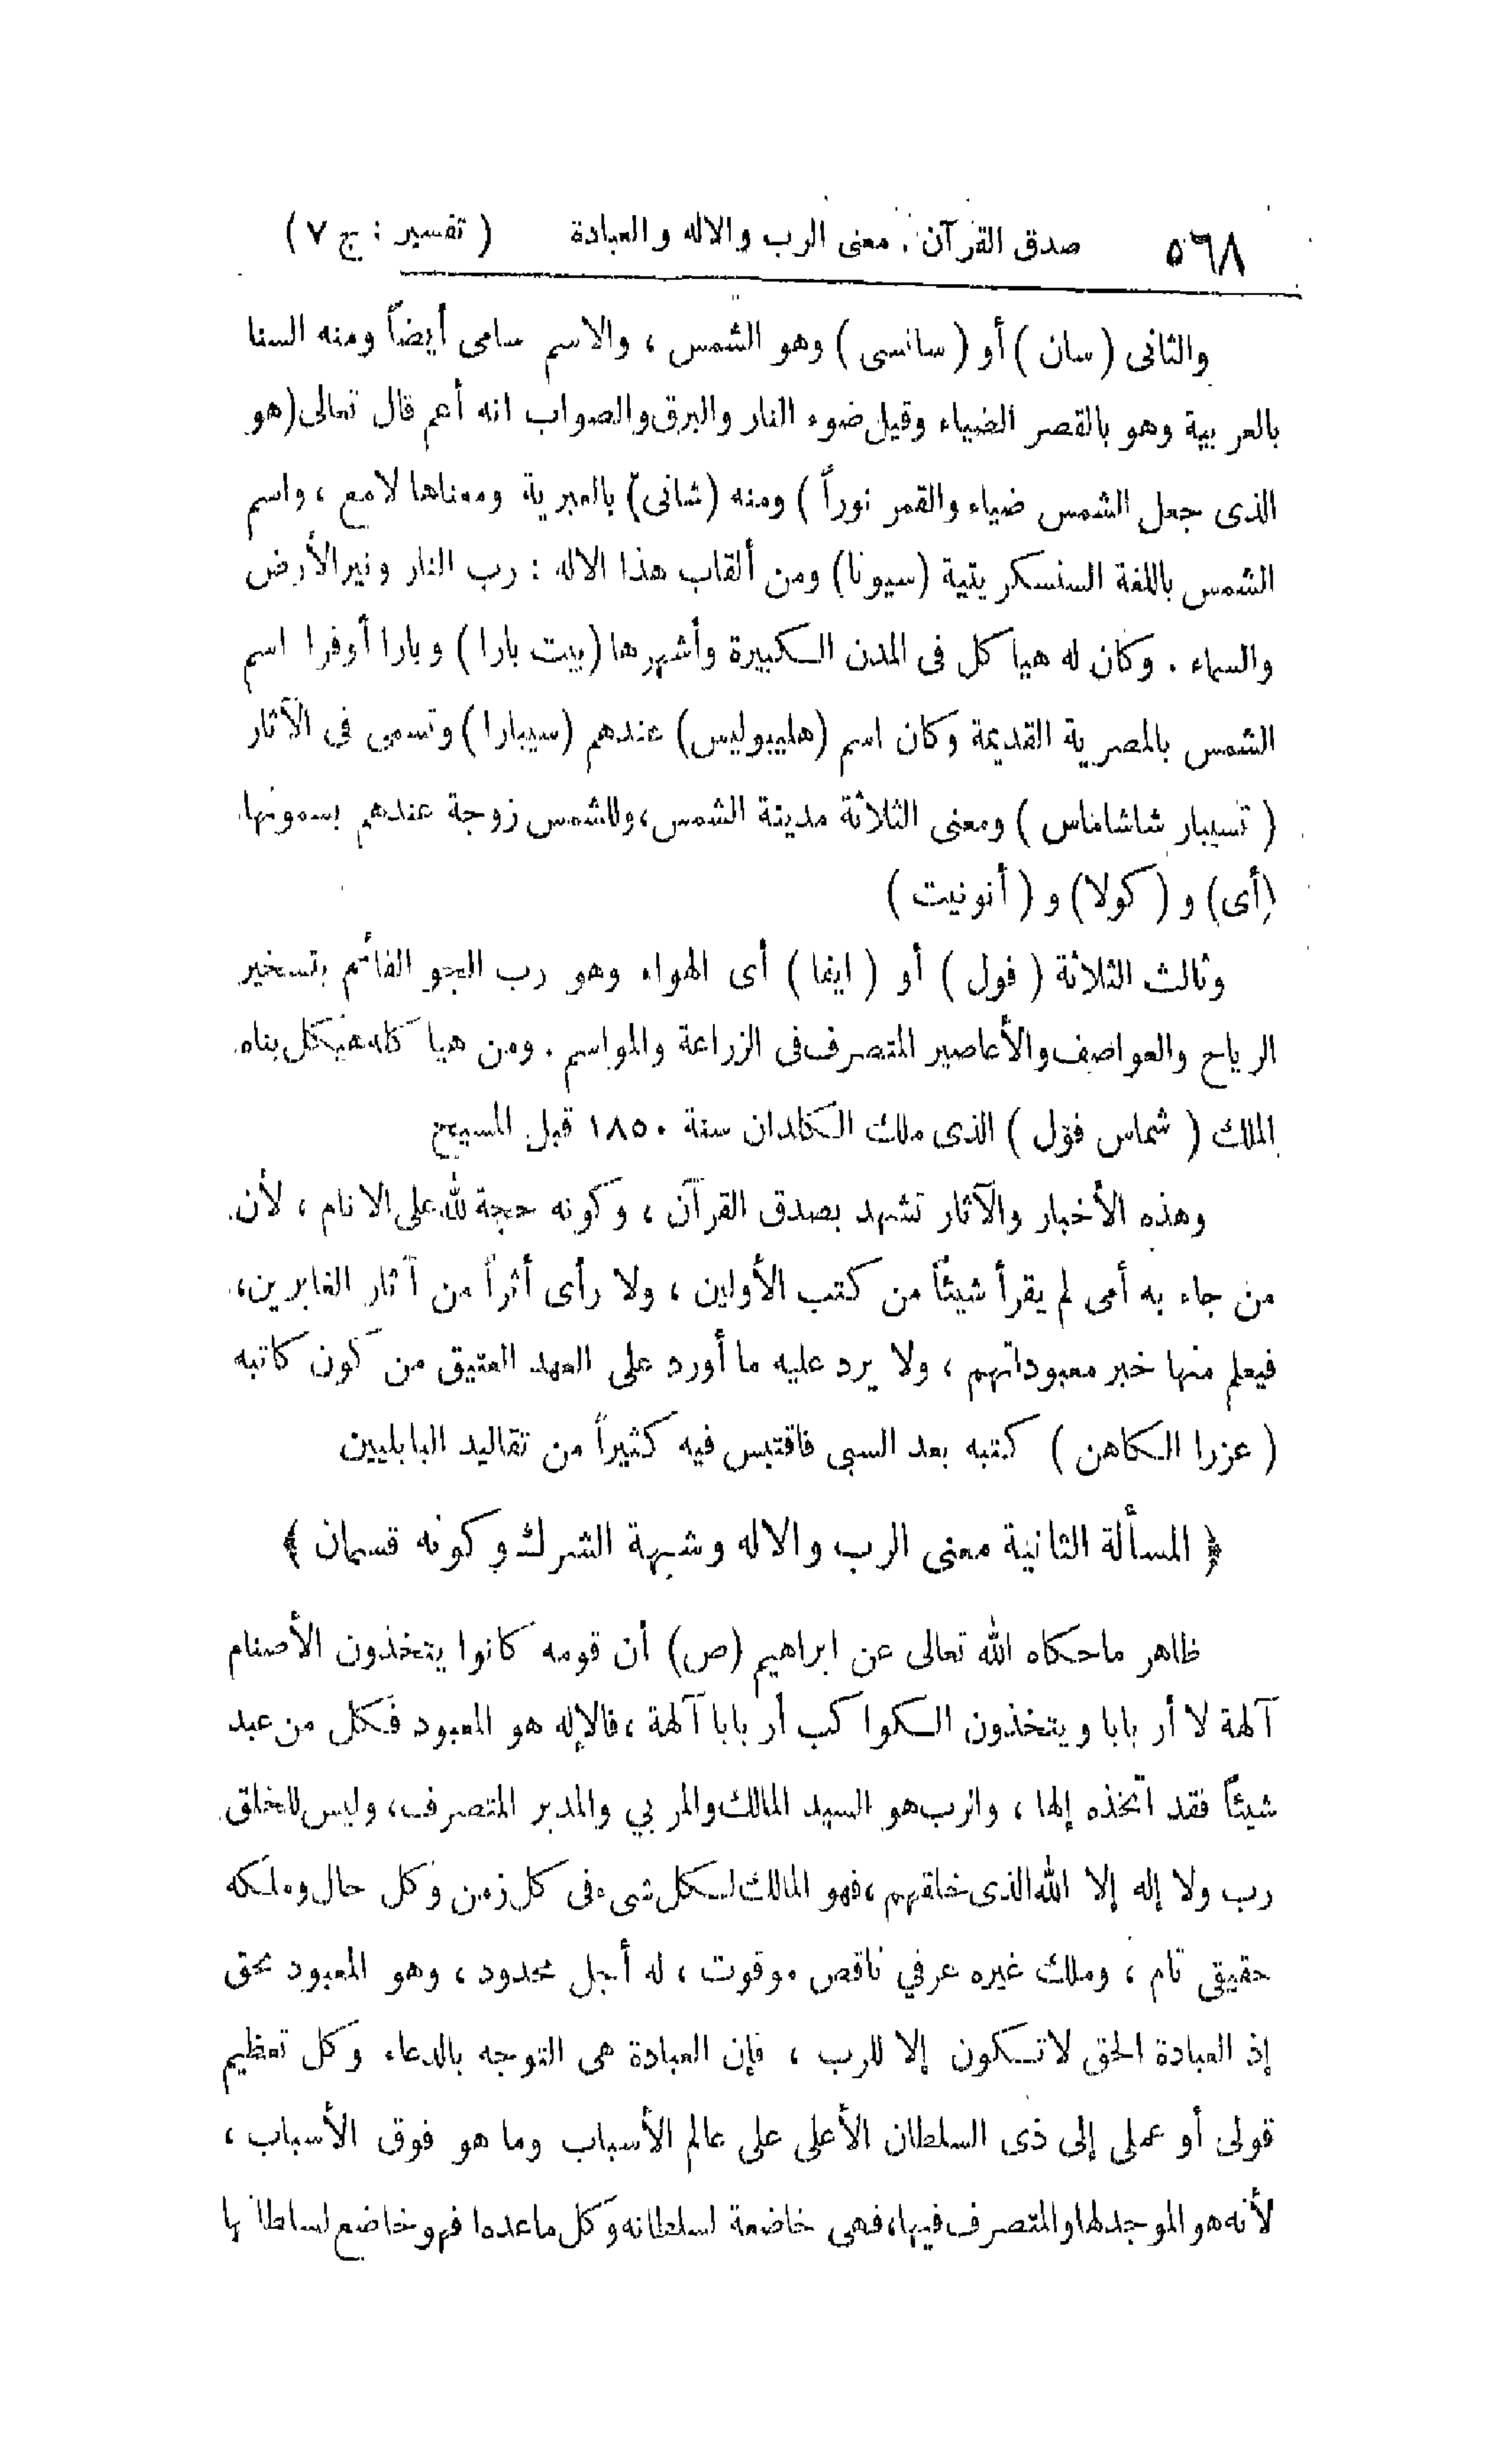 ٥٦٨ صدق القرآن . معنى الرب والاله والعبادة ( تفسير : ج ٧ )
والثانى ( سان ) أو ( سانسى ) وهو الشمس ، والاسم سامى أيضاً ومنه السنا
بالعربية وهو بالقصر الضياء وقيل ضوء النار والبرق والصواب انه أعم قال تعالى (هو
الذى جعل الشمس ضياء والقمر نوراً ) ومنه (شانى) بالعبرية ومعناها لامع ، واسم
الشمس باللغة السنسكريتية (سيونا) ومن ألقاب هذا الاله : رب النار ونير الأرض
والسماء . وكان له هياكل فى المدن الكبيرة وأشهرها (بيت بارا ) وبارا أوفرا اسم
الشمس بالمصرية القديمة وكان اسم (هليبوليس) عندهم (سيبارا ) وتسمى فى الآثار
( تسيبار شاشاماس ) ومعنى الثلاثة مدينة الشمس، وللشمس زوجة عندهم يسمونها
(أى) و (كولا) و ( أنونيت )
وثالث الثلاثة ( فول ) أو ( ايفا ) أى الهواء وهو رب الجو القائم بتسخير
الرياح والعواصف والأعاصير المتصرف فى الزراعة والمواسم . ومن هياكله هيكل بناه
الملك ( شماس فول ) الذى ملك الكلدان سنة ١٨٥٠ قبل المسيح
وهذه الأخبار والآثار تشهد بصدق القرآن ، وكونه حجة لله على الانام ، لأن
من جاء به أمى لم يقرأ شيئاً من كتب الأولين ، ولا رأى أثراً من آثار الغابرين،
فيعلم منها خبر معبوداتهم ، ولا يرد عليه ما أورد على العهد العتيق من كون كاتبه
( عزرا الكاهن ) كتبه بعد السبى فاقتبس فيه كثيراً من تقاليد البابليين
﴿ المسألة الثانية معنى الرب والاله وشبهة الشرك وكونه قسمان ﴾
ظاهر ماحكاه الله تعالى عن ابراهيم (ص) أن قومه كانوا يتخذون الأصنام
آلهة لا أربابا ويتخذون الكواكب أربابا آلهة ، فالإله هو المعبود فكل من عبد
شيئاً فقد اتخذه إلها ، والرب هو السيد المالك والمربي والمدبر المتصرف، وليس للخلق
رب ولا إله إلا الله الذى خلقهم ، فهو المالك لكل شىء فى كل زمن وكل حال وملكه
حقيقى تام ، وملك غيره عرفي ناقص موقوت ، له أجل محدود ، وهو المعبود بحق
إذ العبادة الحق لاتكون إلا للرب ، فإن العبادة هى التوجه بالدعاء وكل تعظيم
قولى أو عملى إلى ذى السلطان الأعلى على عالم الأسباب وما هو فوق الأسباب ،
لأنه هو الموجد لها والمتصرف فيها، فهى خاضعة لسلطانه وكل ماعدها فهو خاضع لسلطانها